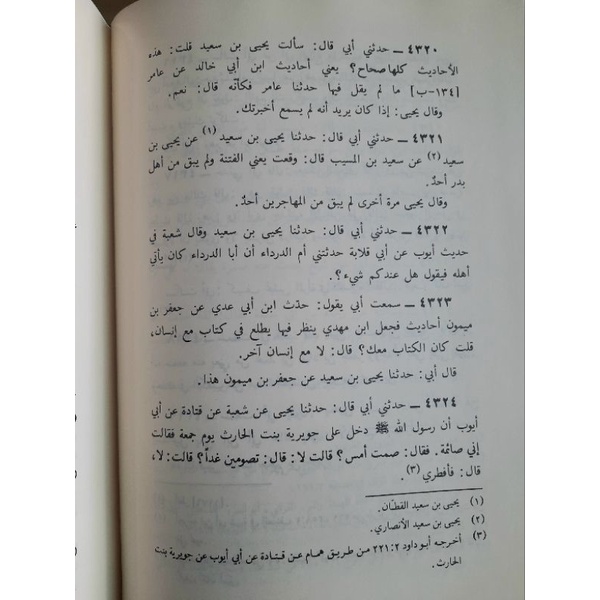 ٤٣٢٠ ــ حدثني أبي قال: سألت يحيى بن سعيد قلت: هذه
الأحاديث كلها صحاح؟ يعني أحاديث ابن أبي خالد عن عامر
[١٣٤-ب] ما لم يقل فيها حدثنا عامر فكأنه قال: نعم.
وقال يحيى: إذا كان يريد أنه لم يسمع أخبرتك.
٤٣٢١ ــ حدثني أبي قال: حدثنا يحيى بن سعيد (١) عن يحيى بن
سعيد (٢) عن سعيد بن المسيب قال: وقعت يعني الفتنة ولم يبق من أهل
بدر أحدٌ.
وقال يحيى مرة أخرى لم يبق من المهاجرين أحدٌ.
٤٣٢٢ ــ حدثني أبي قال: حدثنا يحيى بن سعيد وقال شعبة في
حديث أيوب عن أبي قلابة حدثتني أم الدرداء أن أبا الدرداء كان يأتي
أهله فيقول هل عندكم شيء؟.
٤٣٢٣ ــ سمعت أبي يقول: حدّث ابن أبي عدي عن جعفر بن
ميمون أحاديث فجعل ابن مهدي ينظر فيها يطلع في كتاب مع إنسان،
قلت كان الكتاب معك؟ قال: لا مع إنسان آخر.
قال أبي: حدثنا يحيى بن سعيد عن جعفر بن ميمون هذا.
٤٣٢٤ ــ حدثني أبي قال: حدثنا يحيى عن شعبة عن قتادة عن أبي
أيوب أن رسول الله ﷺ دخل على جويرية بنت الحارث يوم جمعة فقالت
إني صائمة. فقال: صمت أمس؟ قالت لا: قال: تصومين غداً؟ قالت: لا،
قال: فأفطري(٣).
(١) يحيى بن سعيد القطّان.
(٢) يحيى بن سعيد الأنصاري.
(٣) أخرجه أبو داود ٢: ٢٢١ من طريق همام عن قتادة عن أبي أيوب عن جويرية بنت
الحارث.